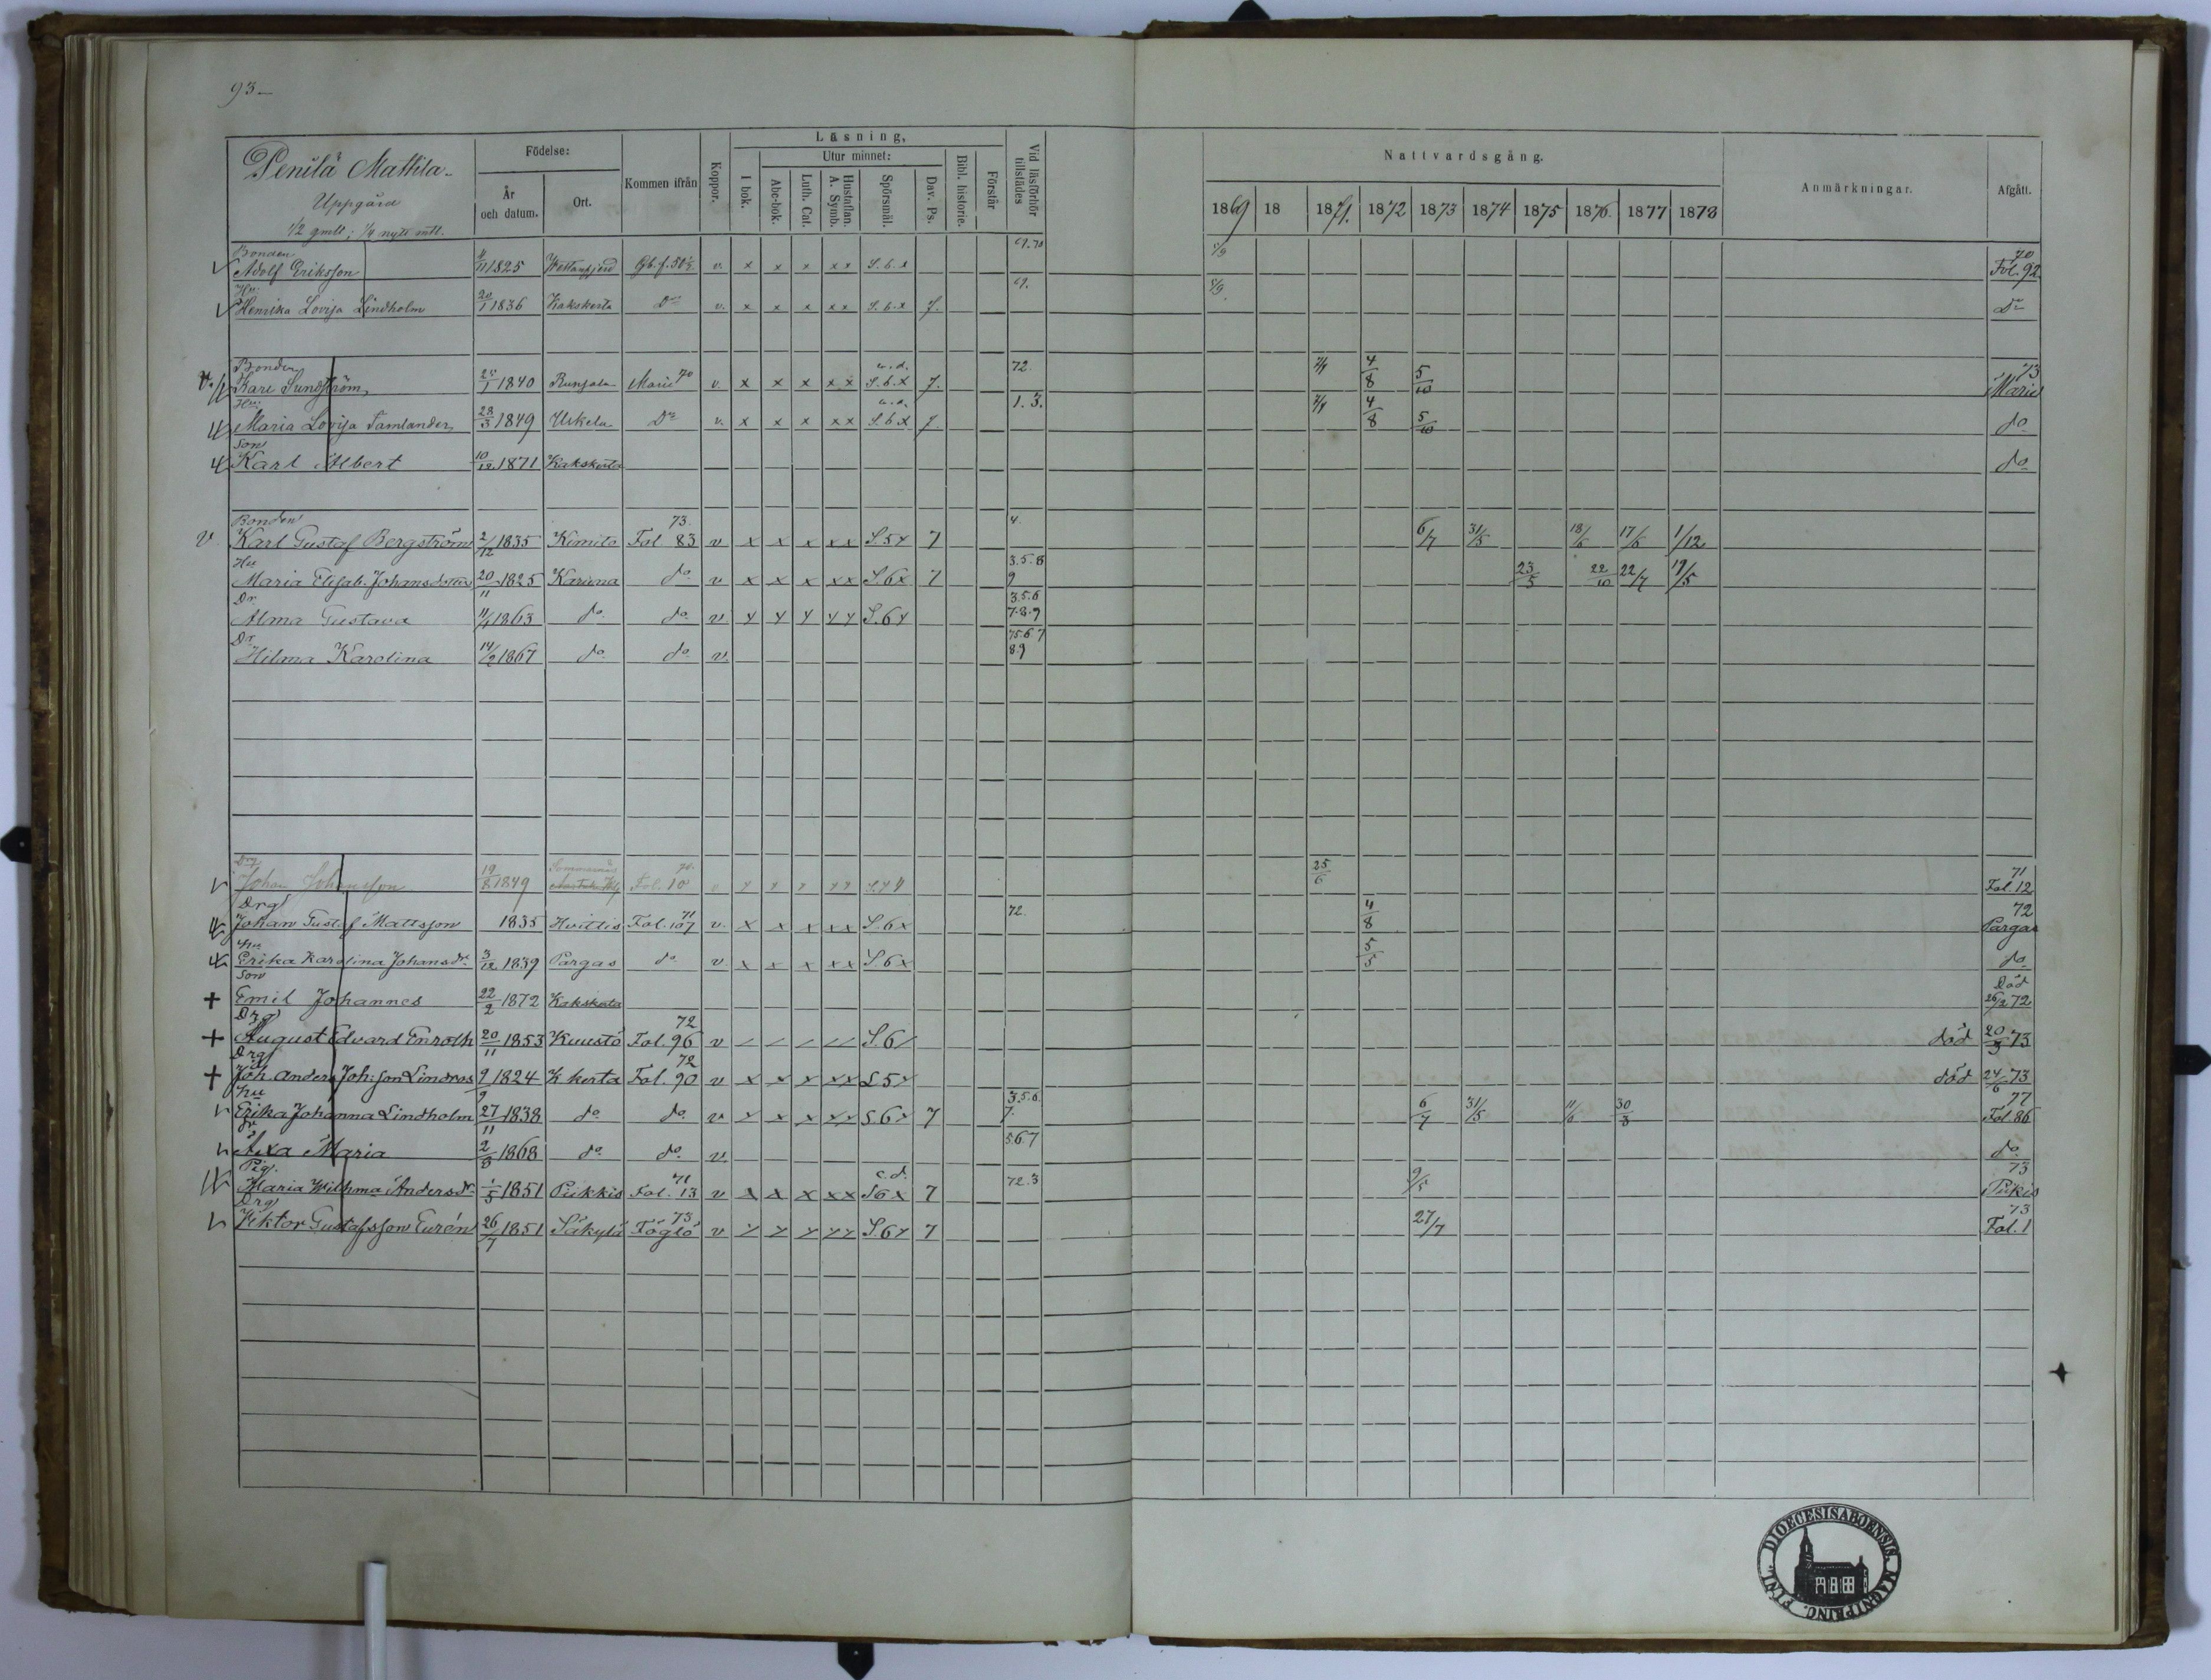 93
Penilä Mattila
Uppgård
1/2 gmlt; 1/4 nytt mtl.
Födelse:
År och datum.
Ort.
Kommen ifrån
Koppor.
Läsning,
I bok.
Utur minnet:
Abc-bok.
Luth. Cat.
Hustaflan. A. Symb.
Spörsmål.
Dav. Ps.
Bibl. historie.
Förstår
Vid läsförhör tillstädes
Nattvardsgång.
1869 18 1871. 1872 1873 1874 1875 1876. 1877 1878
Anmärkningar.
Afgått.
Bonden 69.70 70
Adolf Eriksson 4/11 1825 v. x x x x x S. 6. x Fol. 92
Hu: 69.
Henrika Lovisa Lindholm 20/1 1836 Kakskerta Do v. x x x x x S. 6. x 7. Do
Bonden 72. 73
Karl Sundström 1840 Marie 70 v. x x x x x S. 6. x 7. 4/8 5/10 Marie
Hu: 1. 3.
Maria Lovisa Tamlander 28/3 1849 Uskela Do v. x x x x x S. 6 x 7 4/8 5/10 do
Son
Karl Albert 10/12 1871 Kakskerta do
Bonden 73. 4.
v. Karl Gustaf Bergström 2/12 1835 Kimito Fol. 83 v x x x x x S. 5 x 7 6/7 31/5 18/6 17/6 1/12
Hu 3.5.8
Maria Elisab. Johansdotter 20/11 1825 Karuna do v x x x x x S. 6 x 7 9 23/5 22/10 22/7 19/5
Dr 3.5.6
Alma Gustava 11/4 1863 do do v x x x x x S. 6 x 7.8.9
Dr 75.6.7
Hilma Karolina 14/2 1867 do do v. 8.9
Drg 70. 71
Johan Johansson 19/8 1849 Fol. 10 v 25/6 Fol. 12
Drg 71 72. 72
Johan Gustaf Mattsson 1835 Hvittis Fol. 107 v. x x x x x S. 6 x 4/8 Pargas
Hu
Erika Karolina Johansdr 3/12 1839 Pargas do v. x x x x x S. 6 x 5/5 do
Son Död
+ Emil Johannes 22/2 1872 Kakskerta 26/2 72
Drg 72
+ August Edvard Enroth 20/11 1853 Kuustö Fol. 96 v / / / / / S. 6 / död 20/3 73
Drg 72
+ Joh. Anders Joh:son Lindros 9/9 1824 K kerta Fol. 90 v x x x x x S 5 x död 24/6 73
hu 3.5.6. 77
Erika Johanna Lindholm 27/11 1838 do do v x x x x x S. 6 x 7 7. 6/7 31/5 11/6 30/3 Fol. 86
dr 5.6.7
Axa Maria 2/8 1868 do do v do
Pig. 71 c. d. 72.3 73
Maria Wilhma Andersdr 1/5 1851 Piikkis Fol. 13 v x x x x x S 6 x 7 9/5 Piikis
Drg 73 73
Viktor Gustafsson Eurén 26/7 1851 Säkylä Föglö v x x x x x S. 6 x 7 27/7 Fol. 1
DIOECESIS ABOENSIS. MAGNI PRINC. FINL.